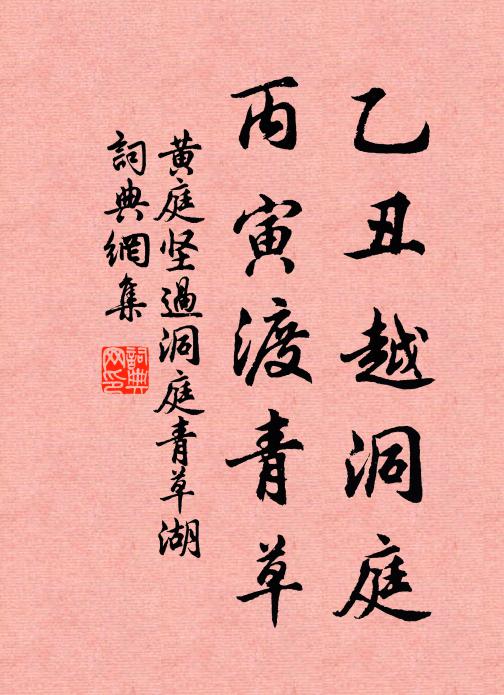 乙丑越洞庭
丙寅渡青草
黄庭坚過洞庭青草湖
詞典網集
詞典網印